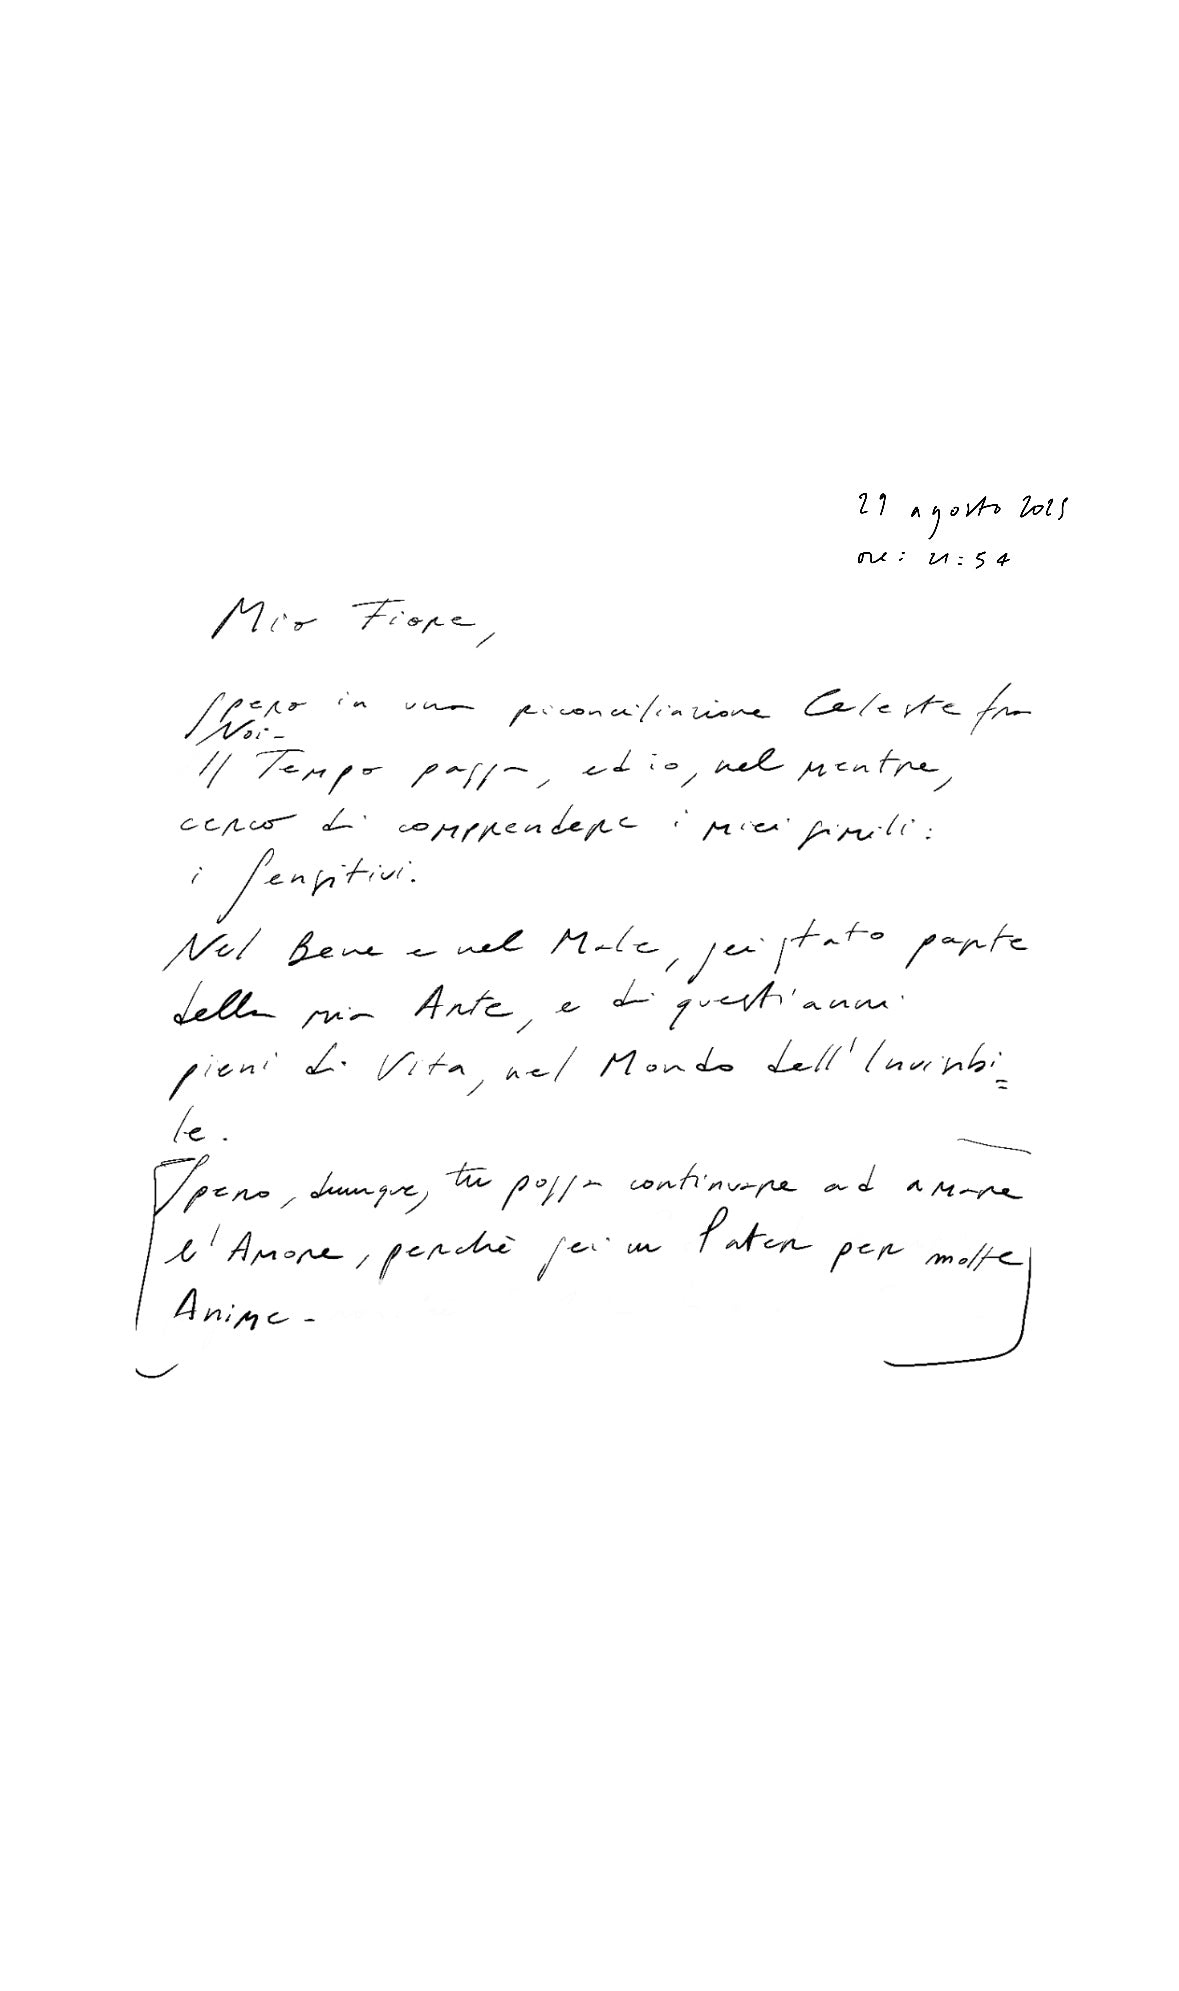 29 agosto 2025
ore: 21:54
Mio Fiore,
Spero in una riconciliazione Celeste fra
Noi-
Il Tempo passa, ed io, nel mentre,
cerco di comprendere i miei simili:
i Sensitivi.
Nel Bene e nel Male, sei stato parte
della mia Arte, e di questi anni
pieni di Vita, nel Mondo dell'Invisibi=
le.
Spero, dunque, tu possa continuare ad amare
l'Amore, perchè sei un Pater per molte
Anime-